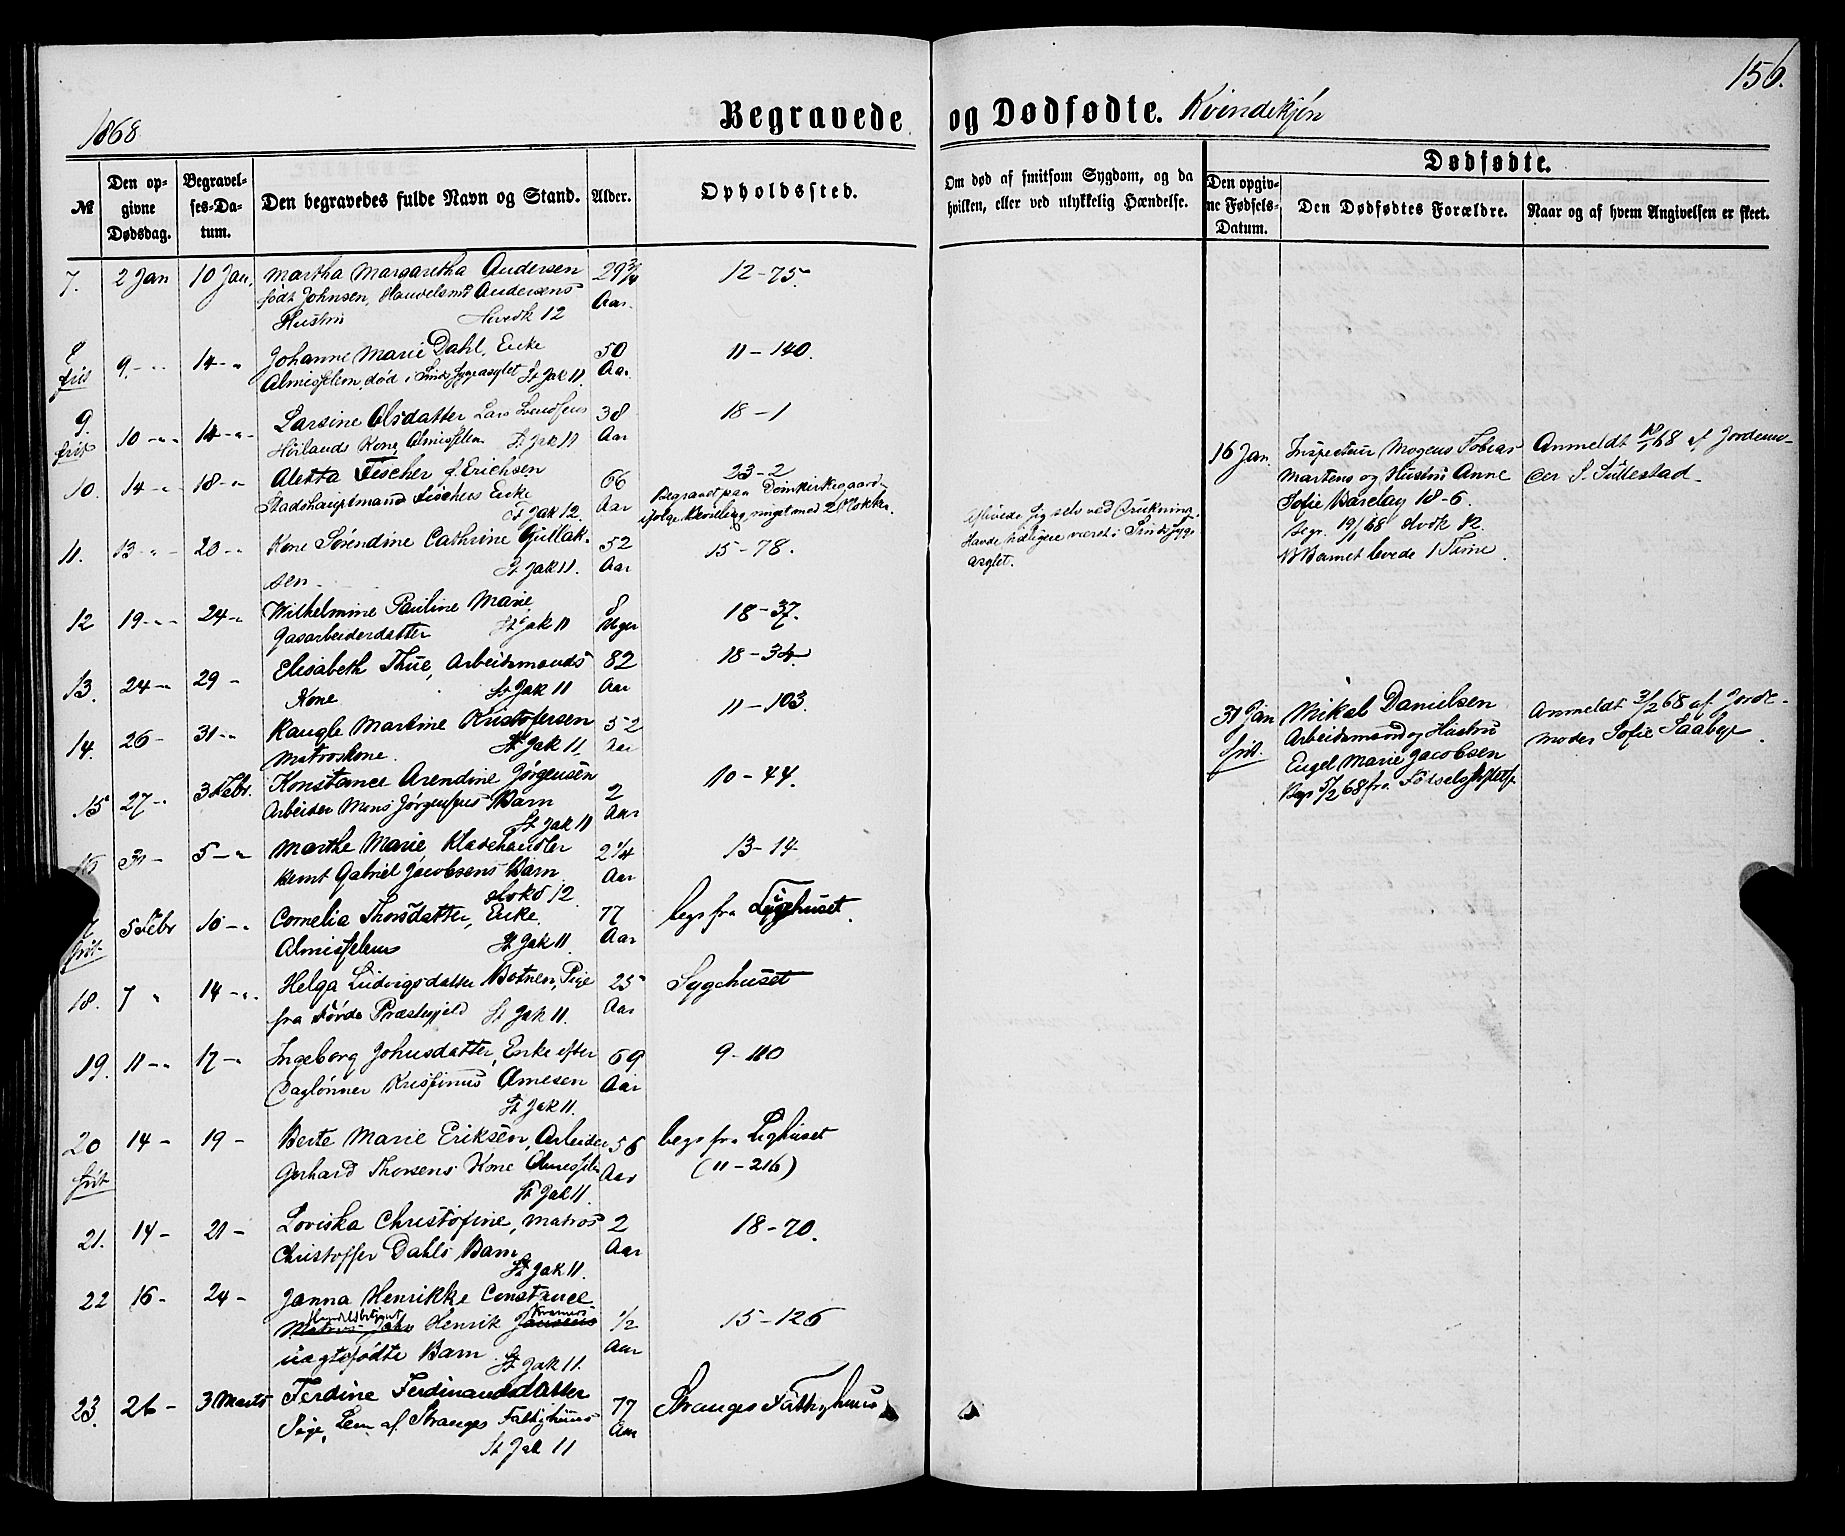 156.
1868
Begravede og Dødfødte. Kvindekjön
№
Den op-
givne
Dødsdag.
Begravel-
ses-Da-
tum.
Den begravedes fulde Navn og Stand.
Alder.
Opholdssted.
Om død af smitsom Sygdom, og da
hvilken, eller ved ulykkelig Hændelse.
Dødfødte.
Den opgiv-
ne Fødsels-
Datum.
Den Dødfødtes Forældre.
Naar og af hvem Angivelsen er skeet.
7. 2 Jan 10 Jan. Martha Margaretha Andersen 29 3/4 12-75.
født Johnsen, Andersens Aar.
Hustru 12
8 9 - " 14 - " Johanne Marie Dahl, Enke 50 11-140.
frit Almisselem, død i Sindssygeasylet St Jak 11. Aar
9. 10 - " 14 - " Larsine Olsdatter Lars Svendsens 38 18-1
frit Kone, Almisselem St Jak 11 Aar
10. 14 - " 18 - " Aletta Fischer f. Erichsen 66 23-2
Stadshauptmand Fischers Enke Aar Begravet paa Domkirkegaard
St Jak 12. ifølge Bevilling, ringet med 2 Klokker.
11. 13 - " 20 - " Kone Sörendine Cathrine Gullak- 52 15-78.
sen. St Jak 11. Aar
sig selv ved Drukning.
Havde tidligere været i Sindssyge
asylet.
12 19 - " 24 - Wilhelmine Pauline Marie 8 18-37.
Gasarbeiderdatter St Jak 11 Uger
13. 24 - " 29 - Elisabeth Thue, Arbeidsmands 82 18-34.
Kone St Jak 11 Aar
14. 26 - 31 - " Martine Kristofersen 52 11-103.
Matroskone. St Jak 11. Aar
15 27 - " 3 Febr. Konstance Arendine Jørgensen 2 10-44.
Arbeider Mons Jørgensens Barn Aar
St Jak 11
16 31 - 5 - " Marthe Marie Kladehandler 2 1/4 13-14
Gabriel Jacobsens Barn Aar
12.
5 Febr 10 - " Cornelia Thorsdatter, Enke. 77 begr fra Sygehuset.
frit. Almisselem St Jak 11 Aar
18. 7 " 14 - " Helga Ludvigsdatter Botnen, Pige 25 Sygehuset
fra Førde Præstegjeld St Jak 11. Aar
19. 11 - " 17 - " Ingeborg Johnsdatter, Enke efter 69 9-110
Daglönner Arnesen Aar
St Jak 11.
20 14 - 19 - Berte Marie Eriksen, Arbeider 56 begr fra Lighuset
frit Gerhard Thorsens Kone Almisselem Aar (11-216)
St Jak 11.
21. 14 - 21 - Loviska Christofine, Matros 2 18-70.
Christoffer Dahls Barn Aar
St Jak 11.
22 16 - 24 - Janna Henrikke Constance
Henrik 1/2 15-126
uægtefødte Barn St Jak 11. Aar
23. 26 - 3 Marts Ferdine Ferdinandsdatter 77 Stranges Fattighus
Pige, Lem af Stranges Fattighus Aar
St Jak 11
16 Jan. Inspecteur Mogens Tobias Anmeldt 68 af Jordemo-
Martens og Hustru Anne der S. Sullestad.
Sofie Barclay 18-6.
Begr. 19/1 68
NB Barnet levede 1 Time.
31 Jan Mikal Danielsen Anmeldt 68 af Jorde-
frit. Arbeidsmand og Hustru moder Sofie Saabye.
Engel Marie Jacobsen
Begr 5/2 68 fra Fødselsstiftelsen